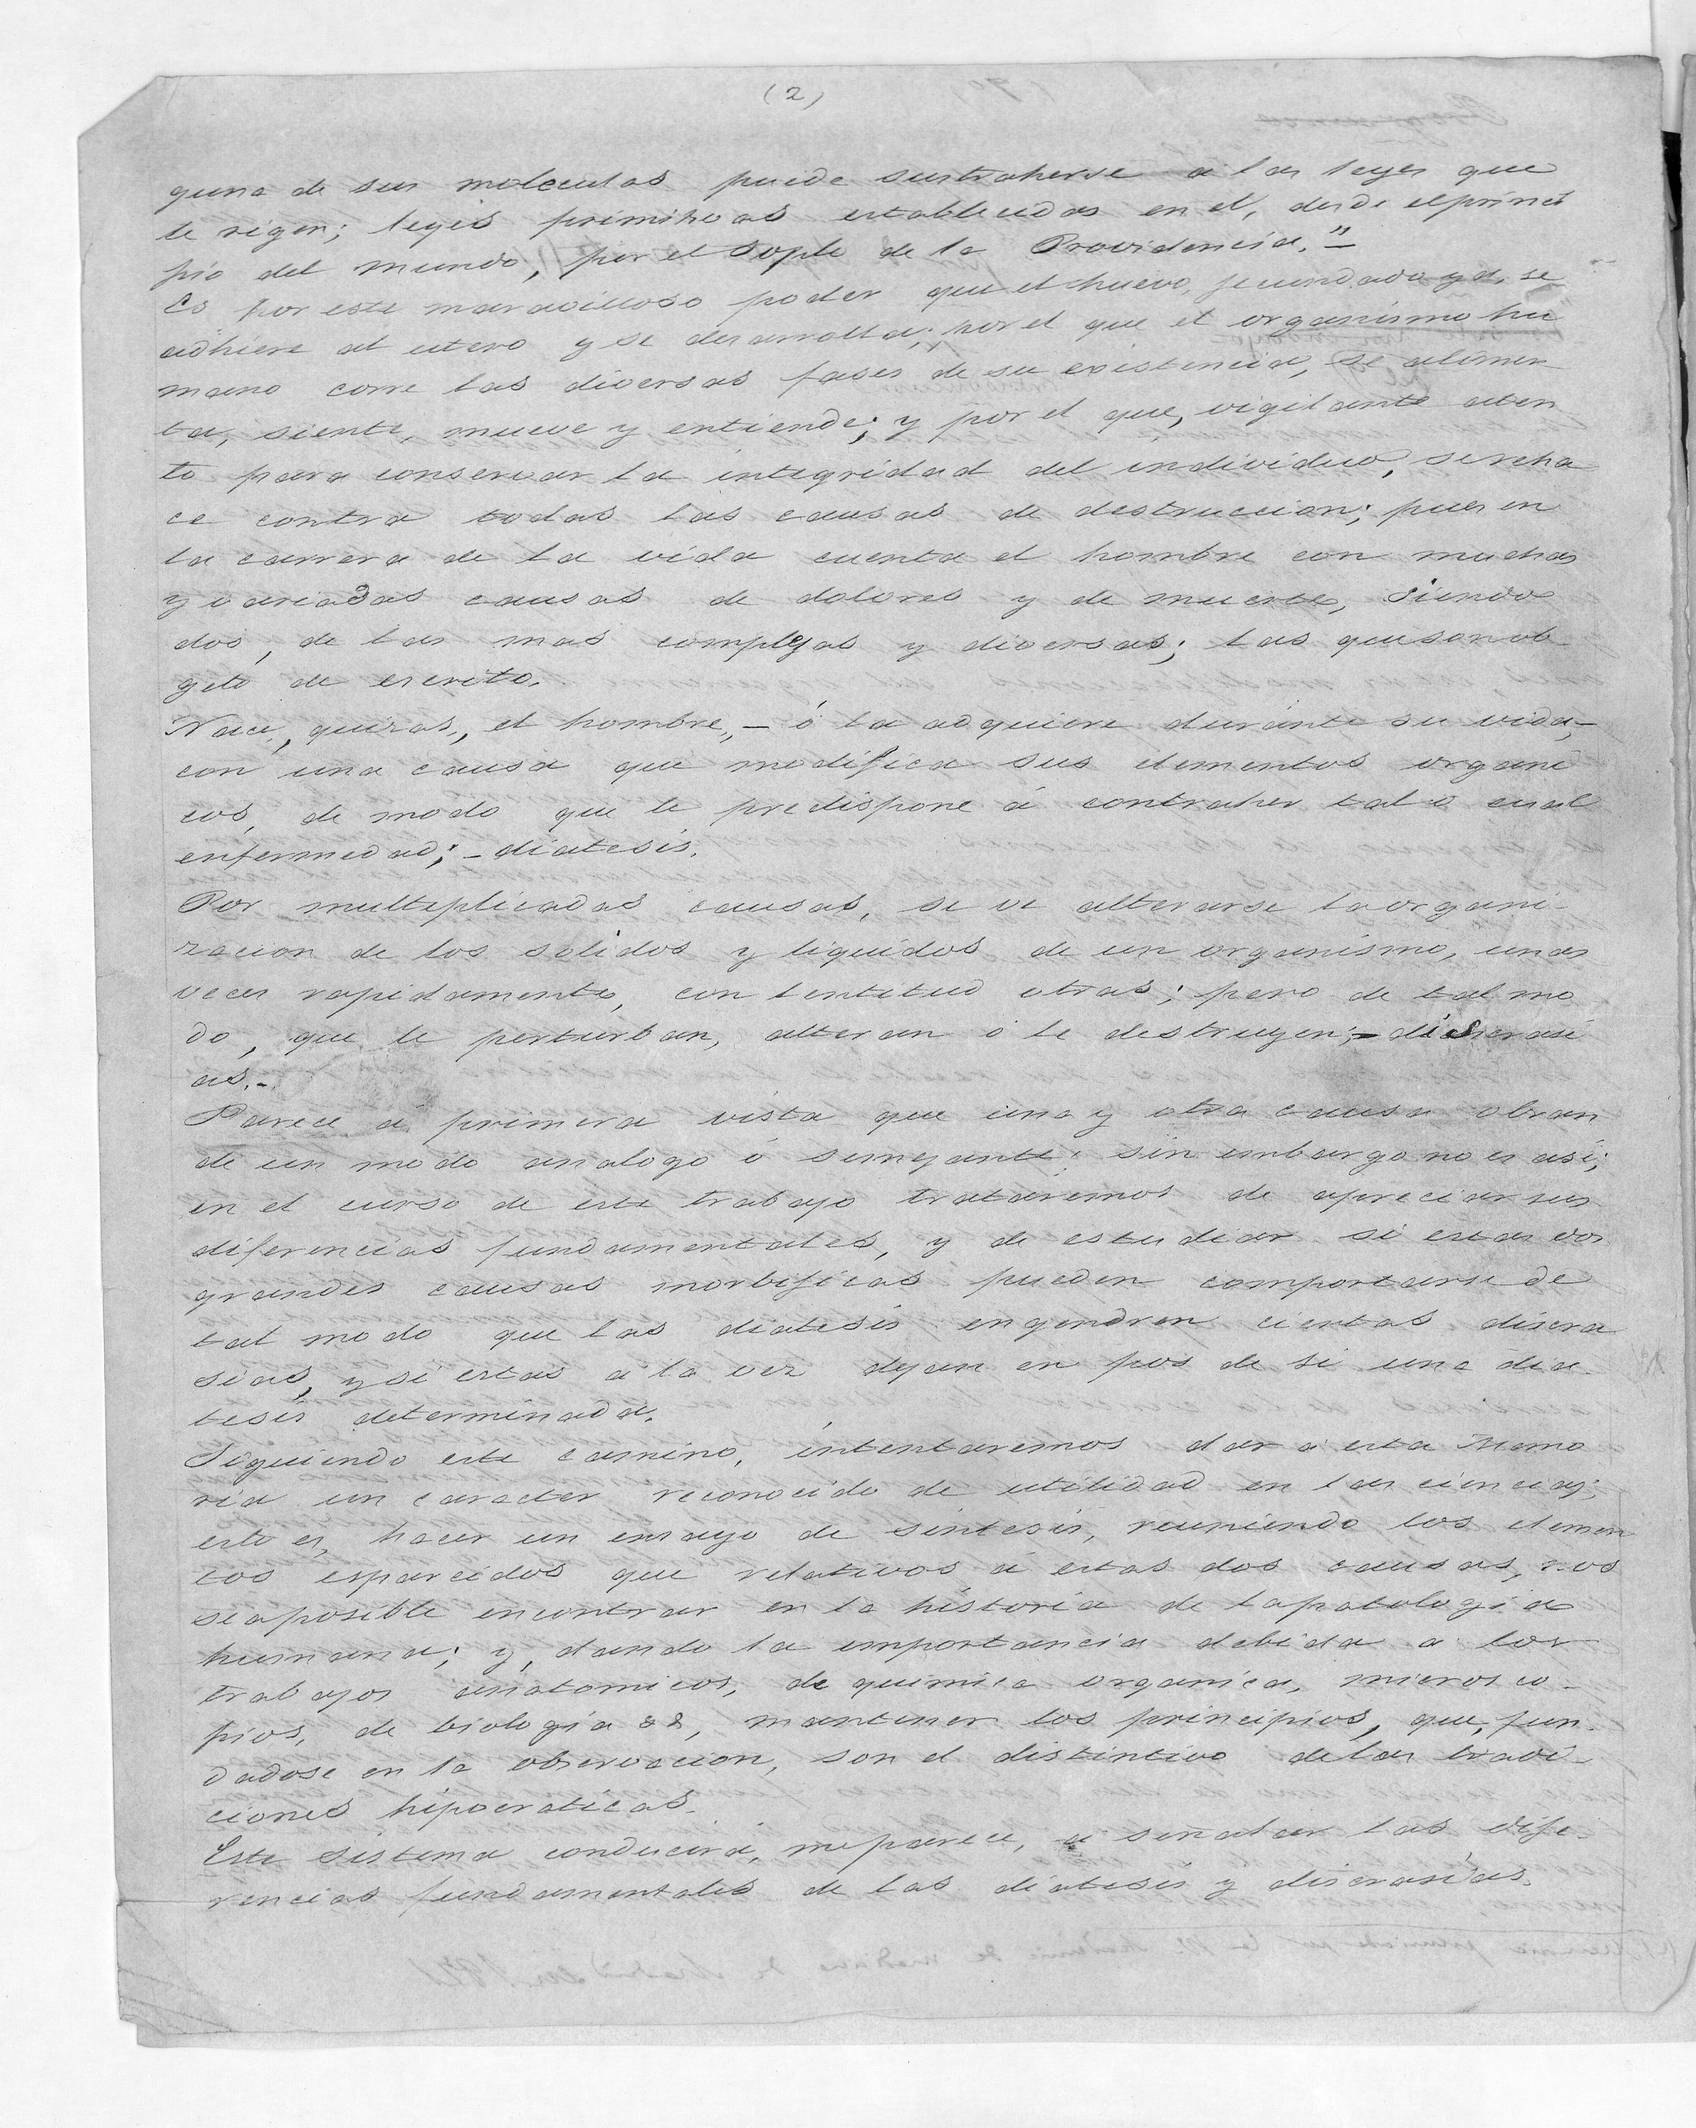 (2)
guna de sus moleculas puede sustraherse a las leyes que
le rigen; leyes primitivas establecidas en el, desde elprinci
pio del mundo, por el soplo de la Providencia."
Es por este maravilloso poder que el huevo, fecundado ya, se
adhiere al utero y se desarrolla; por el que el organismo hu
mano corre las diversas fases de su existencia, se alimen
ta, siente, mueve y entiende; y por el que, vigilante aten
to para conservar la integridad del individuo, se reha
ce contra todas las causas de destruccion; pues en
la carrera de la vida cuenta el hombre con muchas
y variadas causas de dolores y de muerte, siendo
dos, de las mas complejas y diversas; las que son ob
geto de escrito.
Nace, quizas, el hombre, – ó la adquiere durante su vida, –
con una causa que modifica sus elementos organi
cos, de modo que le predispone á contraher tal o cual
enfermedad; – diatesis.
Por multiplicadas causas, se ve alterarse la organi-
zacion de los solidos y liquidos de un organismo, unas
veces rapidamente, con lentitud otras; pero de tal mo
do, que le perturban, alteran o le destruyen; – discrasi
as. –
Parece á primera vista que una y otra causa obran
de un modo analogo ó semejante; sin embargo no es asi;
en el curso de este trabajo trataremos de apreciar sus
diferencias fundamentales, y de estudiar si estas dos
grandes causas morbificas pueden comportarse de
tal modo que las diatesis engendren ciertas discra
sias, y si estas a la vez dejan en pos de si una dia-
tesis determinada.
Siguiendo este camino, intentaremos dar a esta Memo
ria un caracter reconocido de utilidad en las ciencias;
esto es, hacer un ensayo de sintesis, reuniendo los elemen
tos esparcidos que relativos á estas dos causas, nos
sea posible encontrar en la historia de la patologia
humana; y, dando la importancia debida a los
trabajos anatomicos, de quimica organica, microsco-
pios, de biologia &&, mantener los principios, que, fun-
dadose en la observacion, son el distintivo de las tradi-
ciones hipocraticas.
Este sistema conducirá, me parece, a señalar las dife-
rencias fundamentales de las diatesis y discrasias.